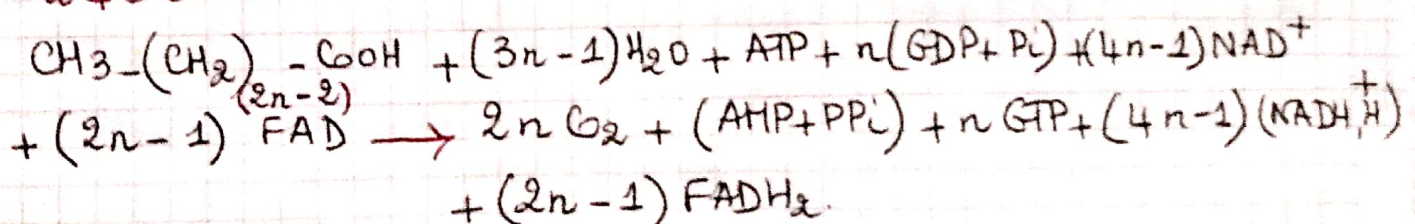 CH3-(CH2)(2n-2)-COOH + (3n-1)H2O + ATP + n(GDP+Pi) + (4n-1)NAD+
+ (2n-1) FAD → 2n CO2 + (AMP+PPi) + n GTP + (4n-1)(NADH,H+)
+ (2n-1) FADH2.